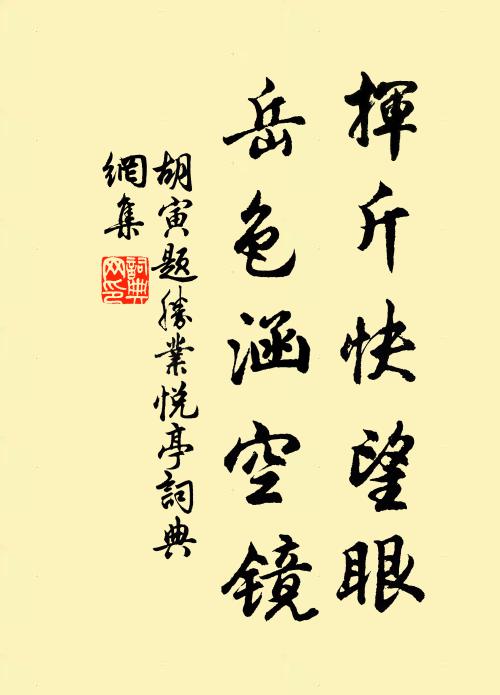 揮斤快望眼
岳色涵空镜
胡寅题勝業悦亭詞典
網集
詞典
网印